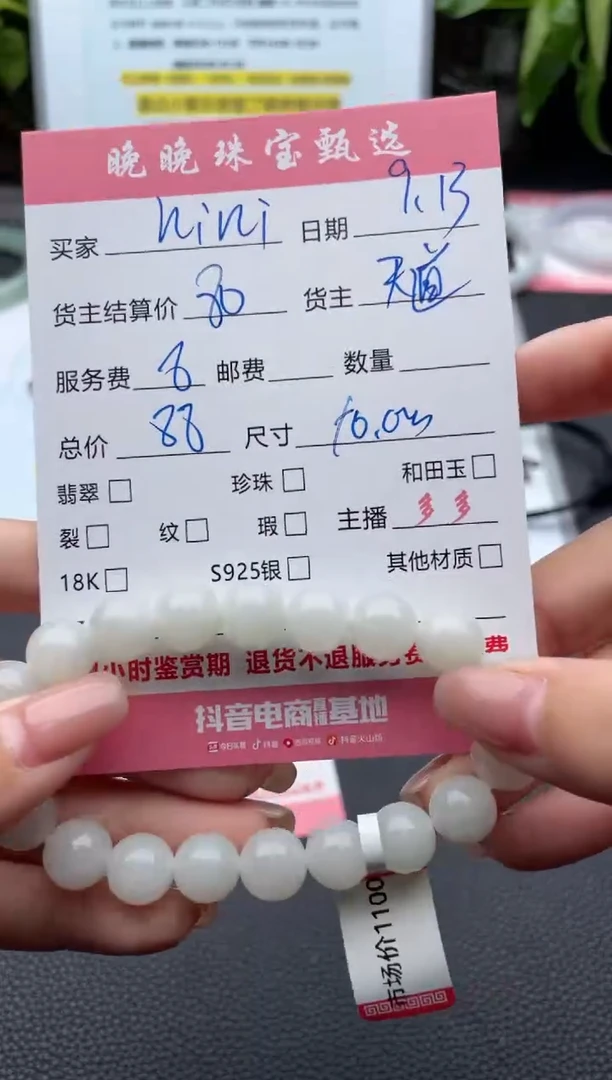 晚晚珠宝甄选
买家 nini 日期 9.13
货主结算价 80 货主 天道
服务费 8 邮费 数量
总价 88 尺寸 10.0m
翡翠 珍珠 和田玉
裂 纹 瑕 主播 多多
18K S925银 其他材质
小时鉴赏期 退货不退服务费
抖音电商直播基地
抖音 抖音火山版
市场价1100